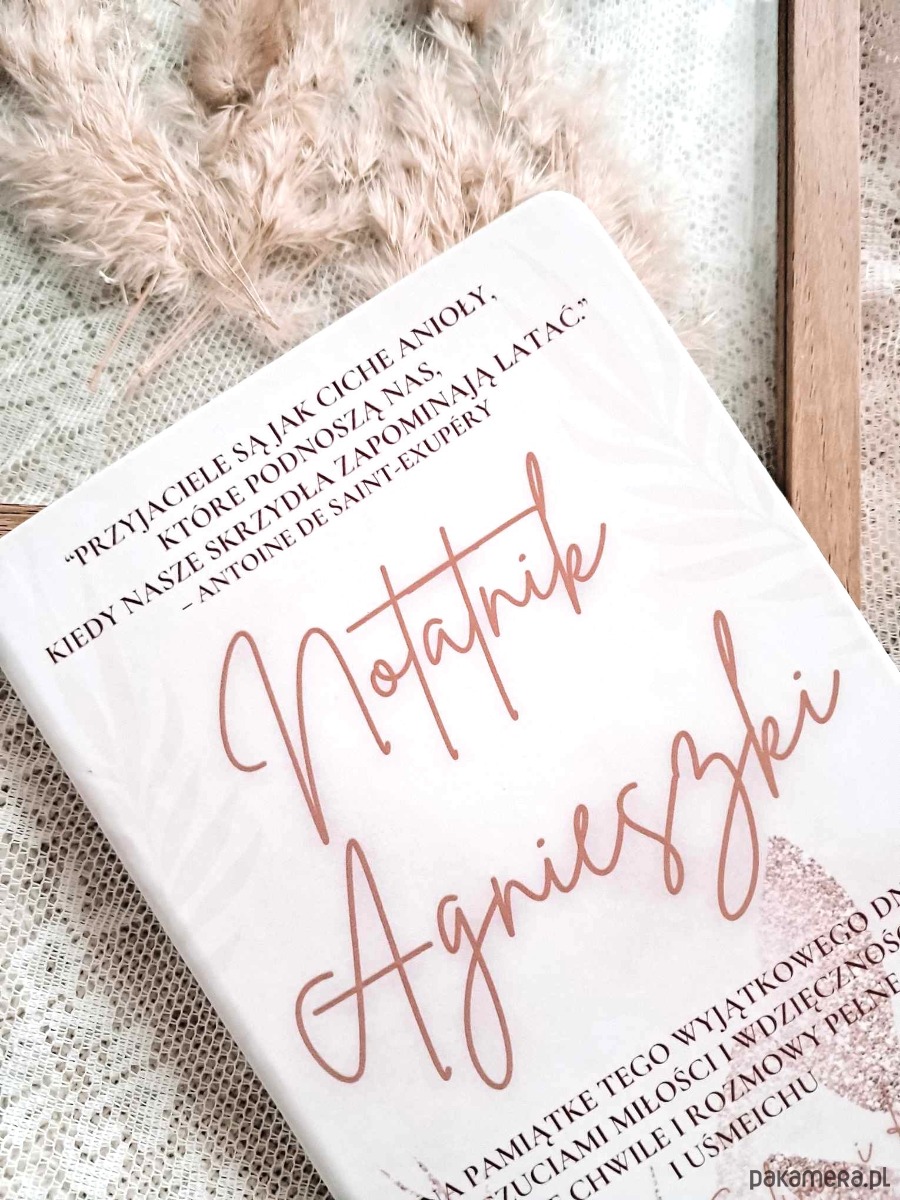 “PRZYJACIELE SĄ JAK CICHE ANIOŁY,
KTÓRE PODNOSZĄ NAS,
KIEDY NASZE SKRZYDŁA ZAPOMINAJĄ LATAĆ.”
– ANTOINE DE SAINT-EXUPÉRY
Notatnik
Agnieszki
NA PAMIĄTKE TEGO WYJĄTKOWEGO
MIŁOŚCI I WDZIĘCZNOŚC
CHWILE I ROZMOWY PEŁNE
I UŚMEICHU
pakamera.pl